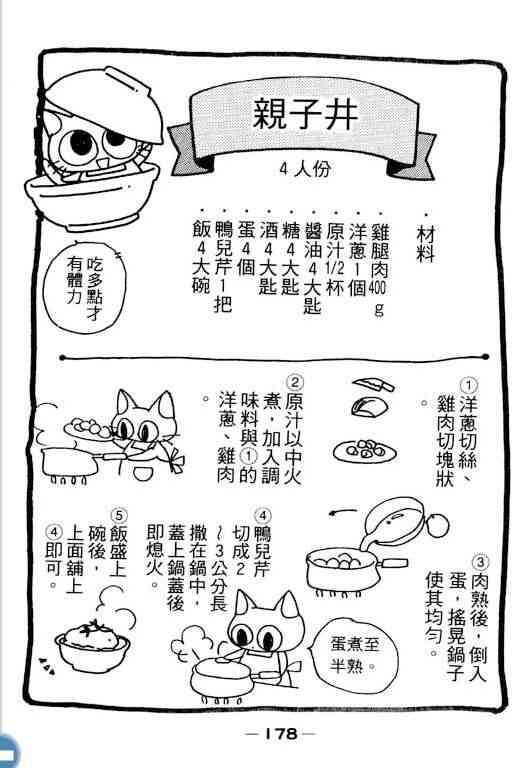 親子丼
4人份
・材料
・雞腿肉400g
・洋蔥1個
・原汁1/2杯
・醬油4大匙
・糖4大匙
・酒4大匙
・蛋4個
・鴨兒芹1把
・飯4大碗
吃多點才
有體力
①洋蔥切絲、
雞肉切塊狀
。
②原汁以中火
煮，加入調
味料與①的
洋蔥、雞肉
。
③肉熟後，倒入
蛋，搖晃鍋子
使其均勻。
蛋煮至
半熟。
④鴨兒芹
切成2
~3公分長
撒在鍋中，
蓋上鍋蓋後
即熄火。
⑤飯盛上
碗後，
上面舖上
④即可。
— 178 —